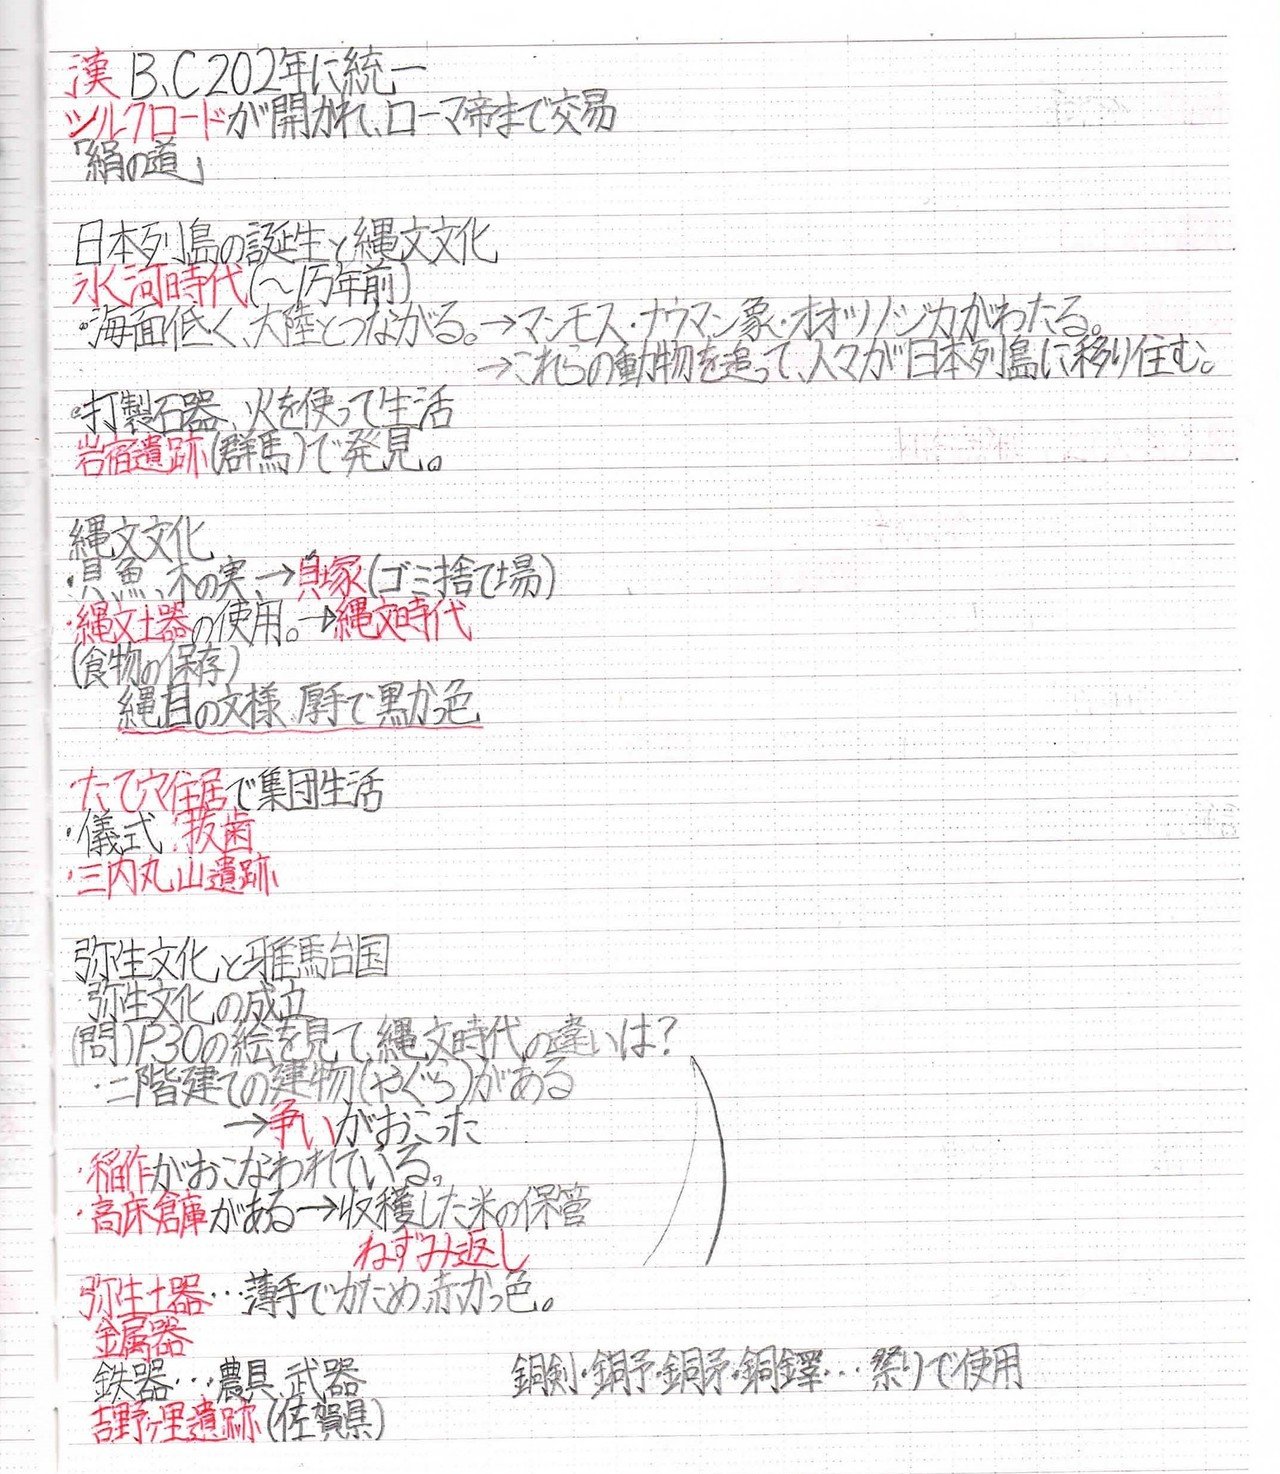 漢 B.C202年に統一
シルクロードが開かれ、ローマ帝まで交易
「絹の道」
日本列島の誕生と縄文文化
氷河時代(〜1万年前)
・海面低く、大陸とつながる。→マンモス・ナウマン象・オオツノジカがわたる。
→これらの動物を追って、人々が日本列島に移り住む。
・打製石器、火を使って生活
岩宿遺跡(群馬)で発見。
縄文文化
・貝、魚、木の実、→貝塚(ゴミ捨て場)
・縄文土器の使用。→縄文時代
(食物の保存)
縄目の文様、厚手で黒かっ色
・たて穴住居で集団生活
・儀式:抜歯
・三内丸山遺跡
弥生文化と邪馬台国
弥生文化の成立
(問)P.30の絵を見て、縄文時代の違いは?
・二階建ての建物(やぐら)がある
→争いがおこった
・稲作がおこなわれている。
・高床倉庫がある→収穫した米の保管
ねずみ返し
弥生土器…薄手でかため、赤かっ色。
金属器
鉄器…農具、武器 銅剣・銅予・銅矛・銅鐸…祭りで使用
吉野ヶ里遺跡(佐賀県)